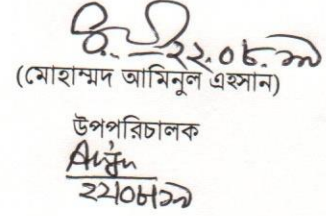 ২২.০৮.১৯
(মোহাম্মদ আমিনুল এহসান)
উপপরিচালক
২২০৮১৯